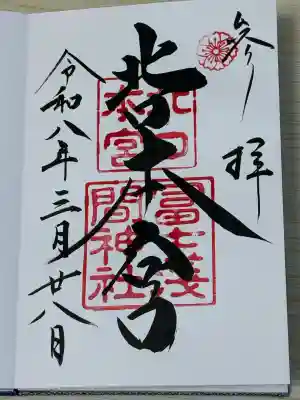 参拝
北口本宮
北口
本宮
冨士浅
間神社
令和八年三月廿八日